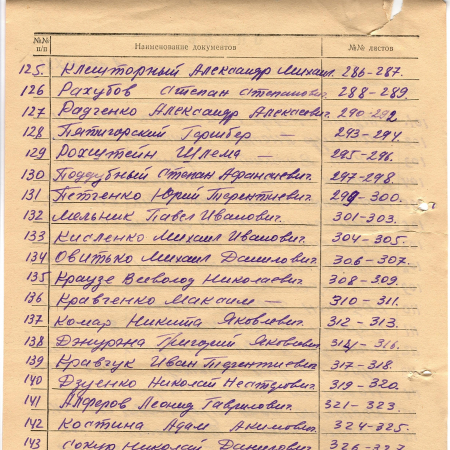 №№ п/п Наименование документов №№ листов
125. Клешторный Александр Михаил. 286-287.
126 Рахубов Степан Степанович 288-289
127 Радченко Александр Алексеевич. 290-292
128 Пятигорский Гершбер — 293-294.
129 Рохштейн Шлема — 295-296.
130 Поддубный Степан Афанасиевич 297-298.
131 Петченко Юрий Терентиевич. 299-300.
132 Мельник Павел Иванович. 301-303.
133 Кисленко Михаил Иванович. 304-305.
134 Овитько Михаил Данилович. 306-307.
135 Краузе Всеволод Николаевич. 308-309.
136 Кравченко Максим — 310-311.
137 Комар Никита Яковлевич. 312-313.
138 Джурэна Григорий Яковлевич 314-316.
139 Кравчук Иван Терентиевич 317-318.
140 Дзуенко Николай Нестерович. 319-320.
141 Алферов Леонид Гаврилович. 321-323.
142 Костина Адам Акимович. 324-325.
143 Сокур Николай Данилович. 326-327